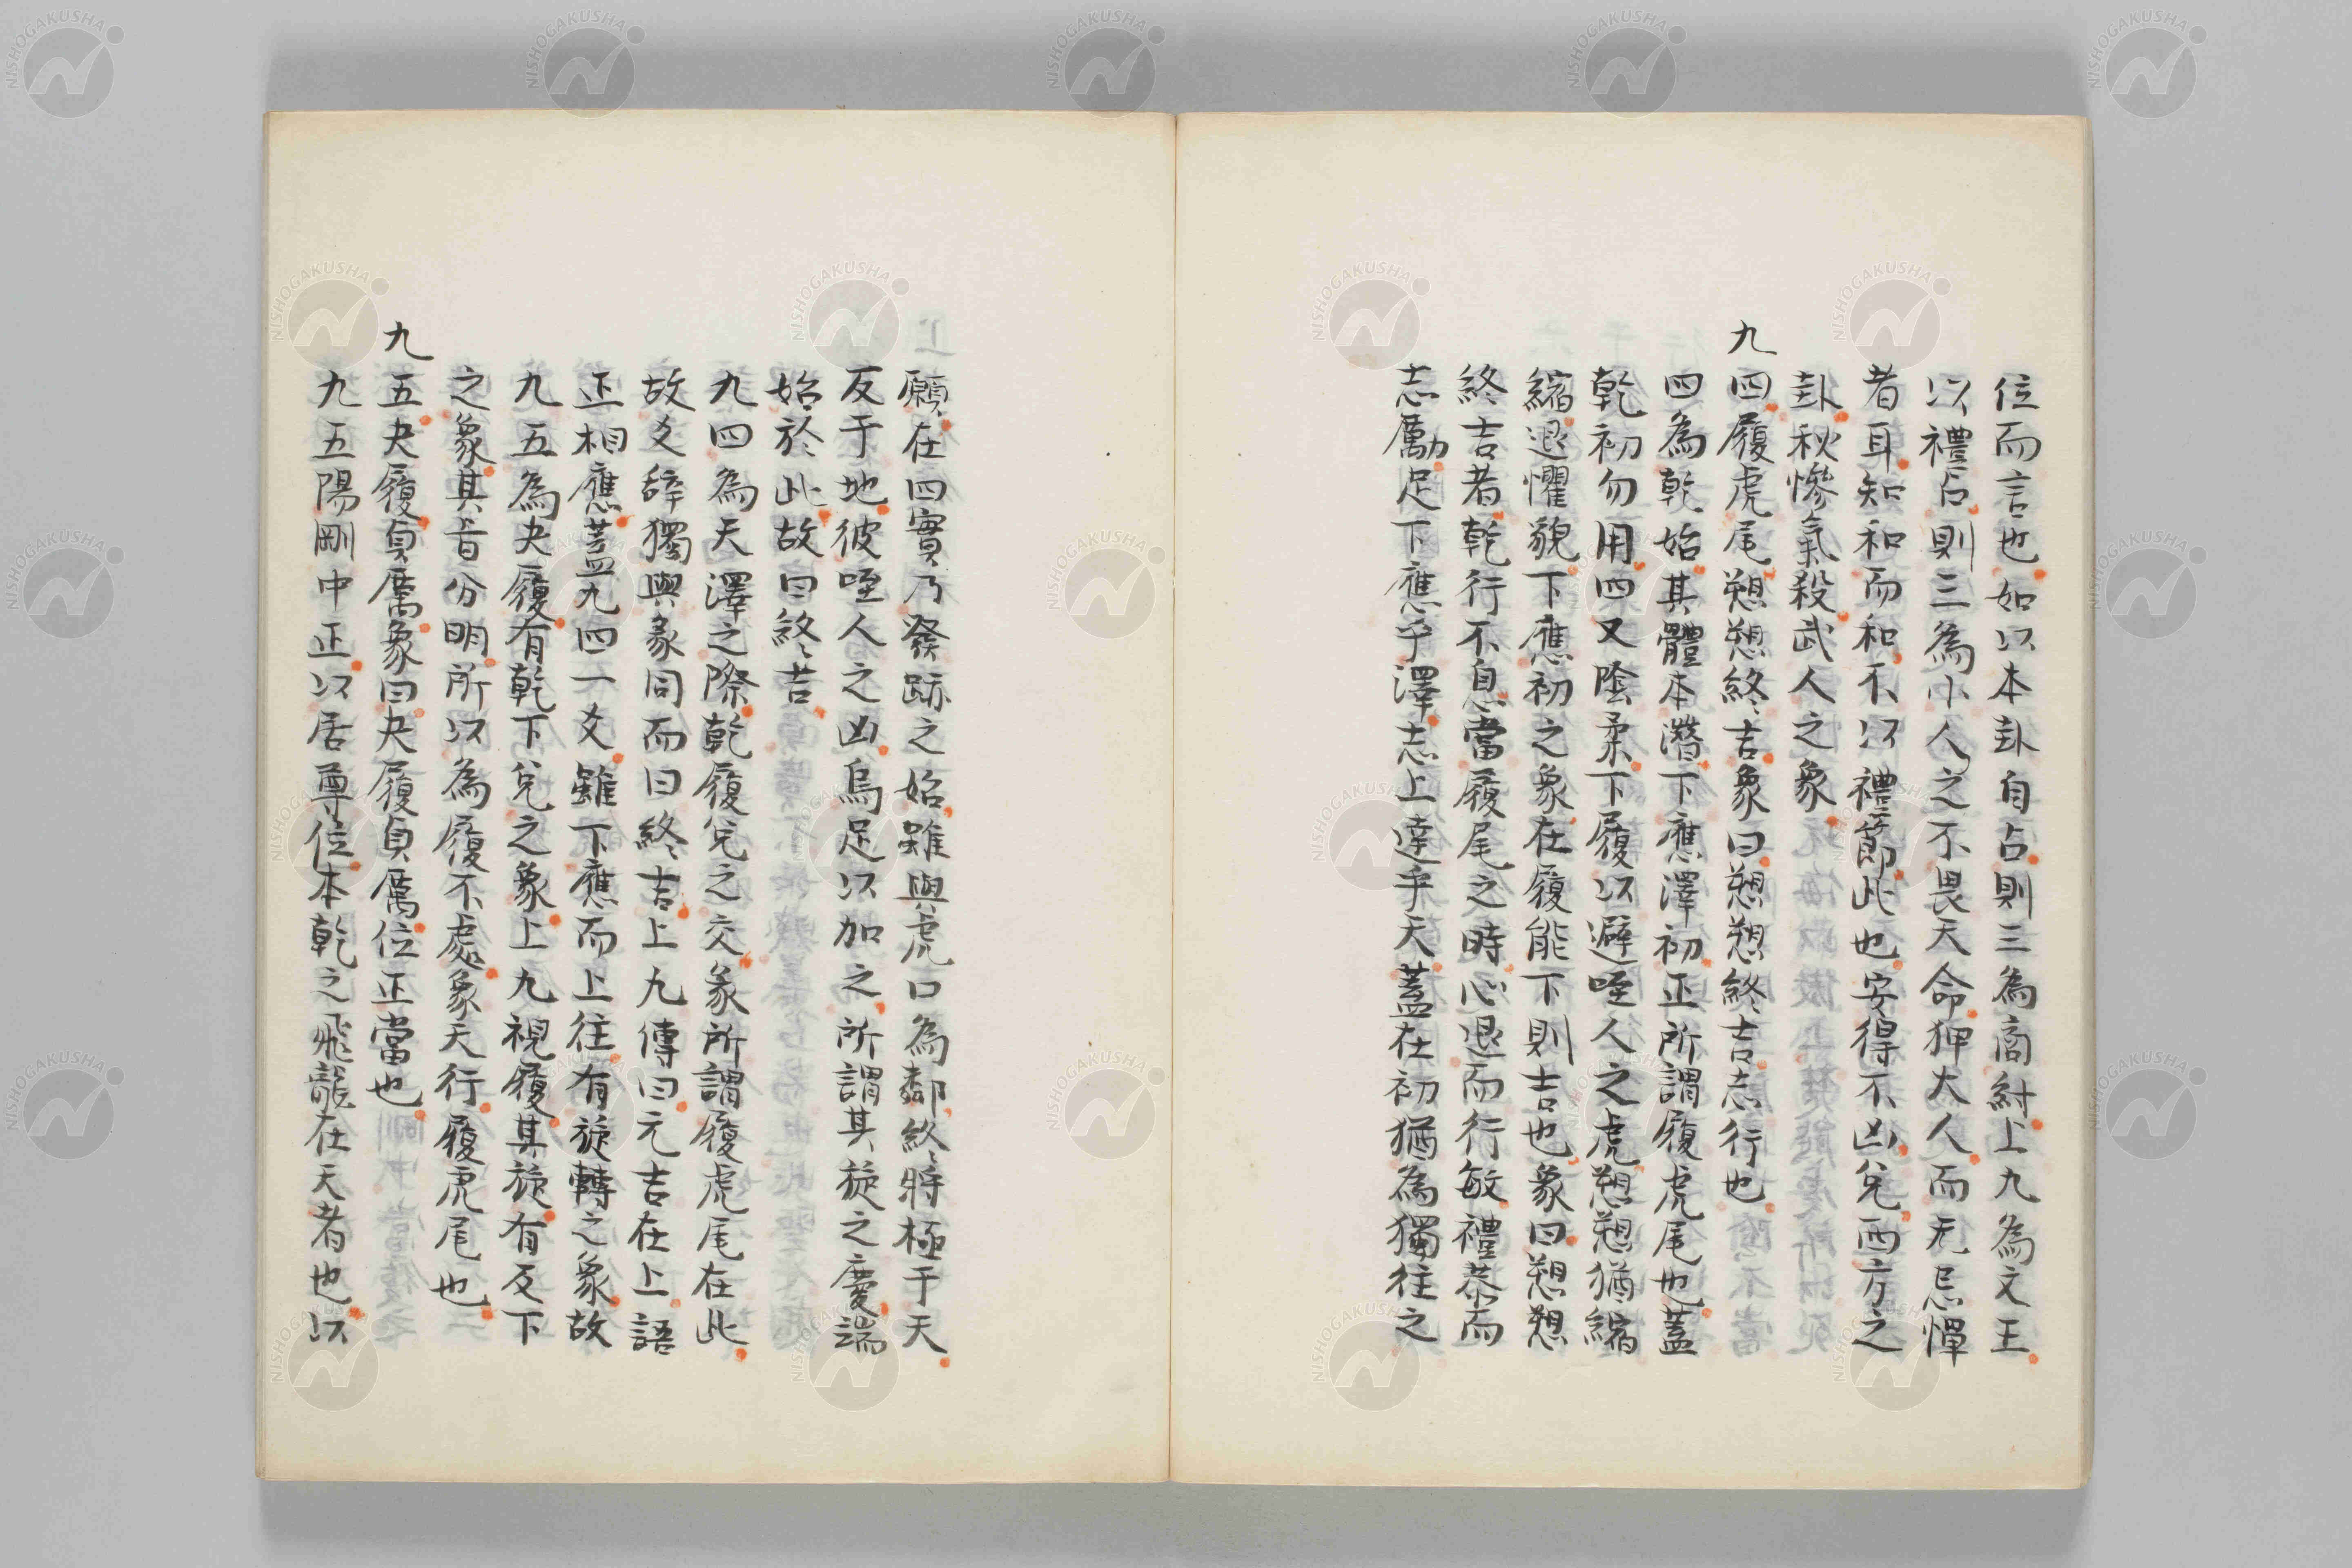 位而言也如以本卦自占則三為商紂上九為文王
以禮占則三為小人之不畏天命狎大人而无忌憚
者耳知和而和不以禮節此也安得不凶兌西方之
卦秋慘氣殺武人之象
九四履虎尾愬愬終吉象曰愬愬終吉志行也
四為乾始其體本潛下應澤初正所謂履虎尾也蓋
乾初勿用四又陰柔下履以避咥人之虎愬愬猶縮
縮退懼貌下應初之象在履能下則吉也象曰愬愬
終吉者乾行不息當履尾之時心退而行敏禮恭而
志厲足下應乎澤志上達乎天蓋在初猶為獨往之
願在四實乃發跡之始雖與虎口為鄰終將極于天
反于地彼咥人之凶烏足以加之所謂其旋之慶端
始於此故曰終吉
九四為天澤之際乾履兌之交彖所謂履虎尾在此
故爻辭獨與彖同而曰終吉上九傳曰元吉在上語
正相應蓋九四一爻雖下應而上往有旋轉之象故
九五為夬履有乾下兌之象上九視履其旋有反下
之象其旨分明所以為履不處象天行履虎尾也
九五夬履貞厲象曰夬履貞厲位正當也
九五陽剛中正以居尊位本乾之飛龍在天者也以
NISHOGAKUSHA